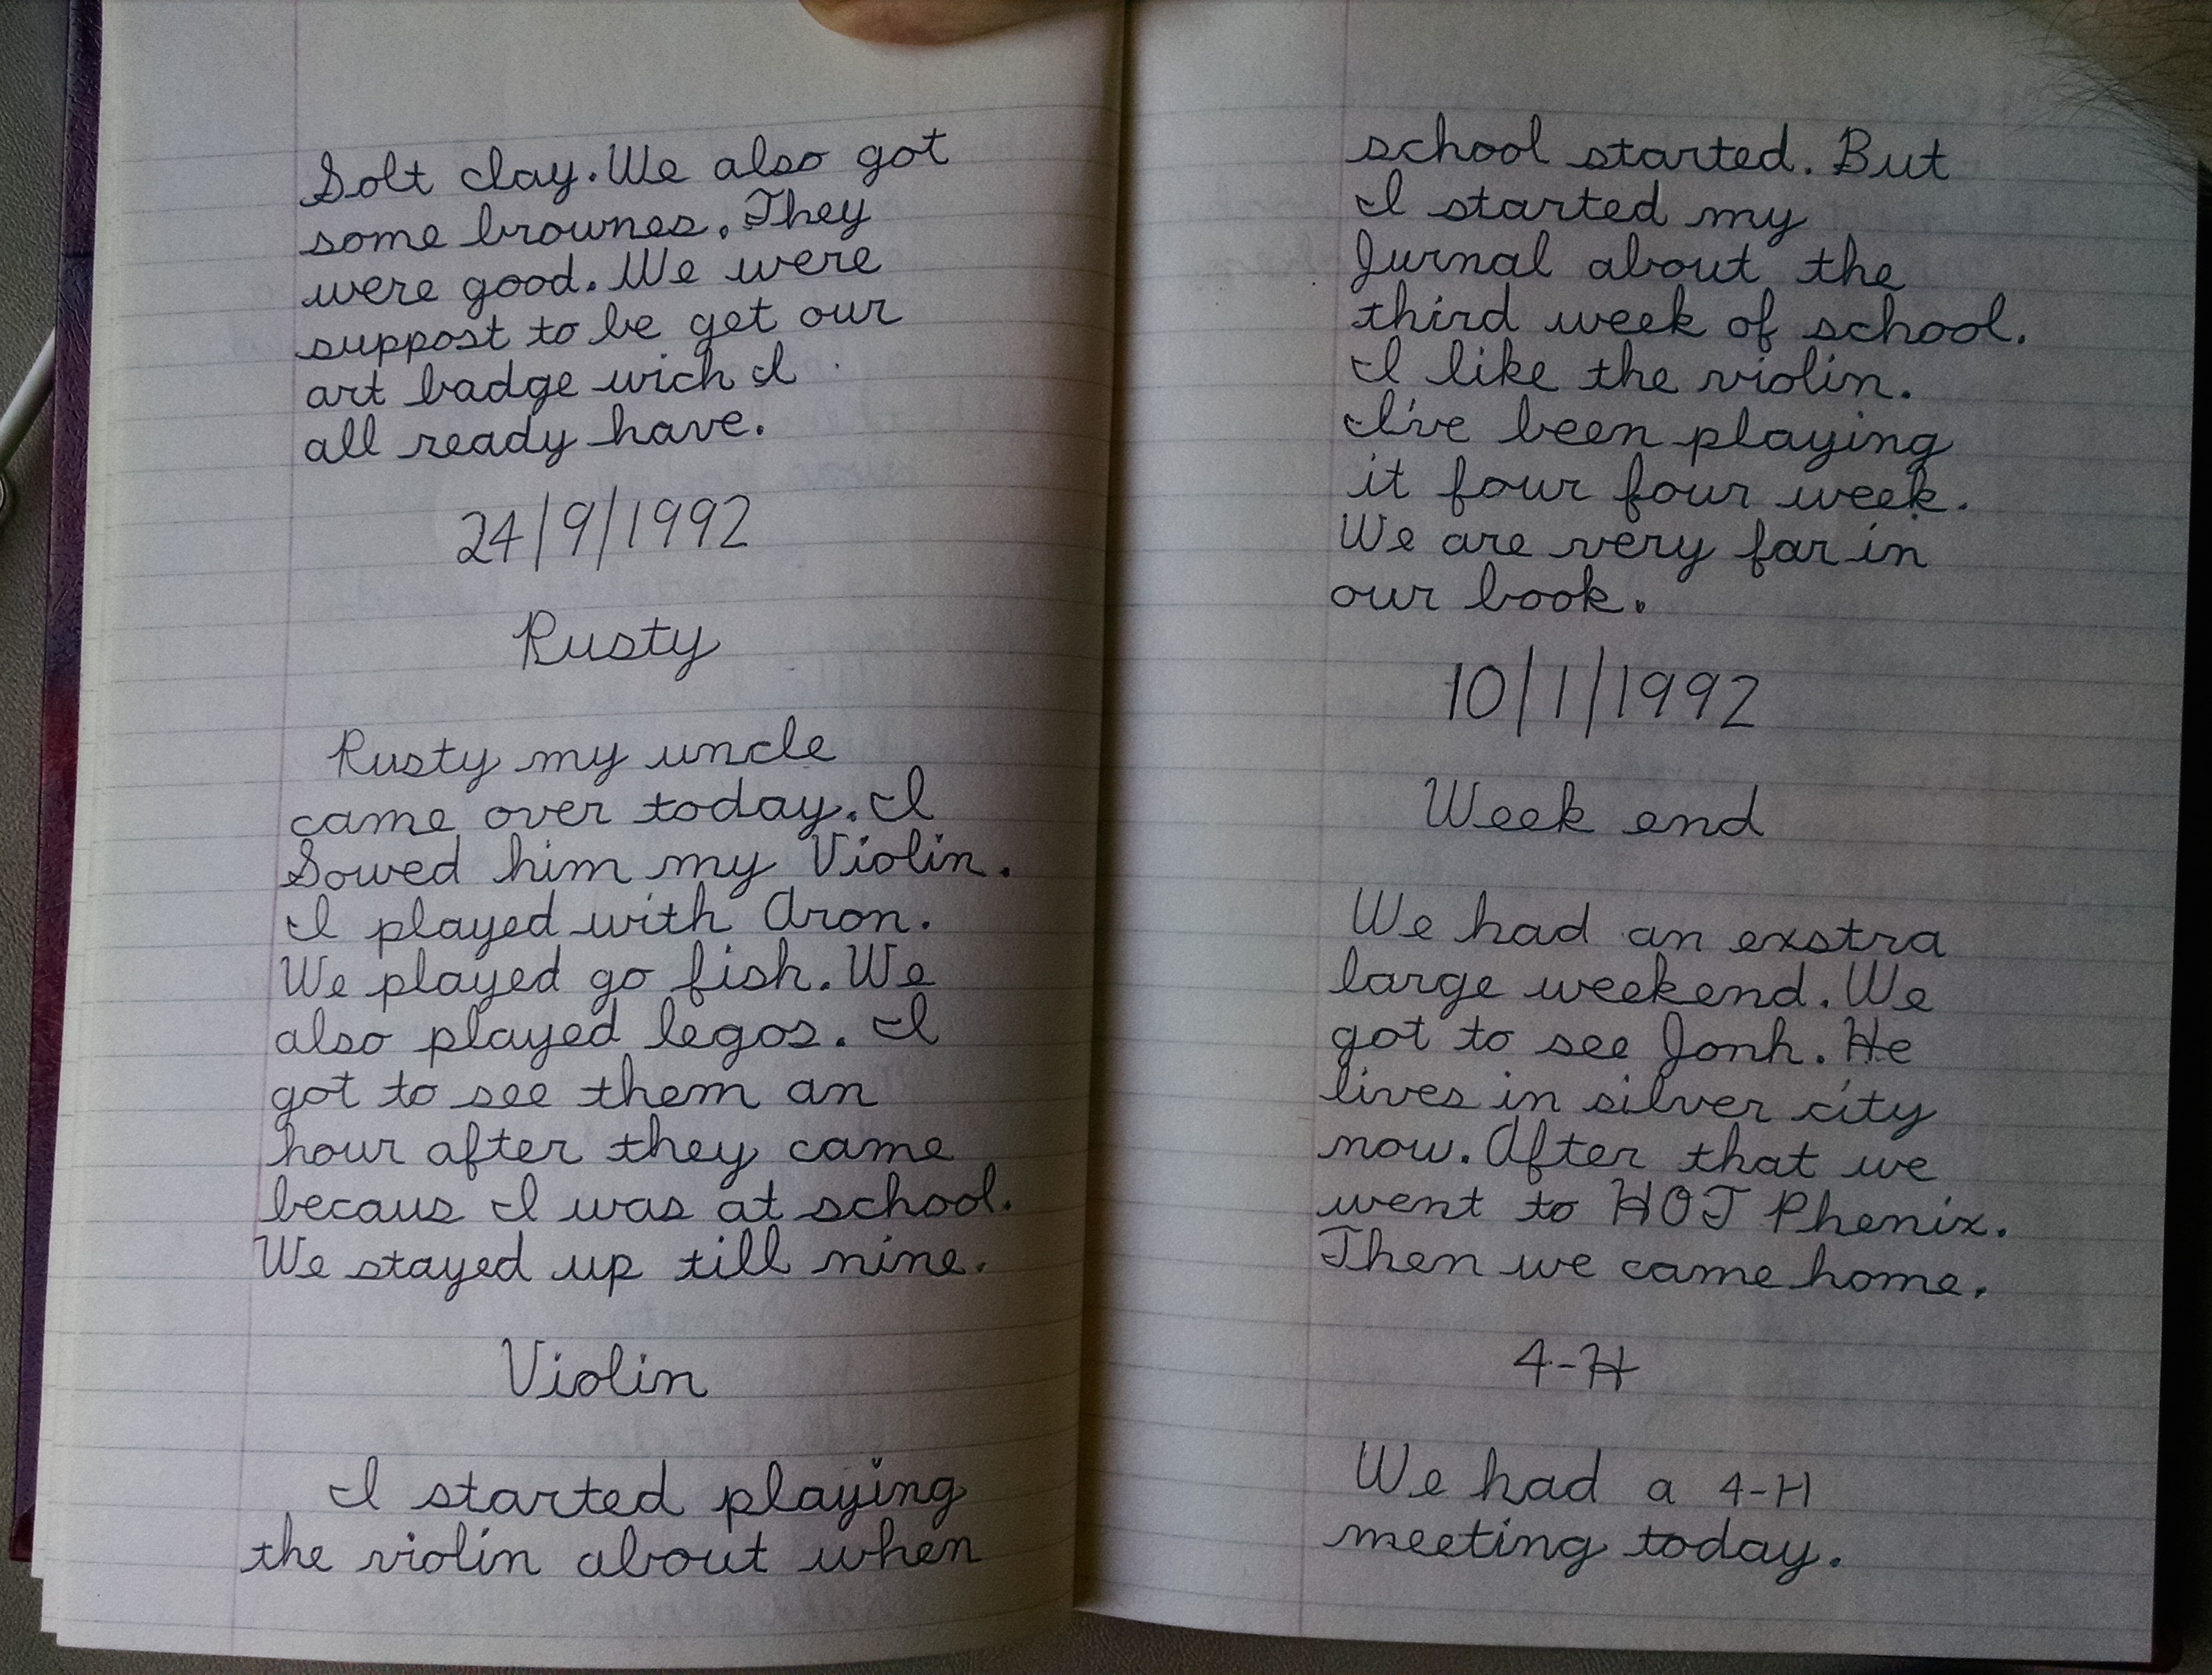 Solt clay. We also got
some brownes. They
were good. We were
suppost to be get our
art badge wich I
all ready have.
24/9/1992
Rusty
Rusty my uncle
came over today. I
Sowed him my Violin.
I played with Aron.
We played go fish. We
also played legos. I
got to see them an
hour after they came
becaus I was at school.
We stayed up till nine.
Violin
I started playing
the violin about when
school started. But
I started my
Jurnal about the
third week of school.
I like the violin.
I've been playing
it four four week.
We are very far in
our book.
10/1/1992
Week end
We had an exstra
large weekend. We
got to see Jonh. He
lives in silver city
now. After that we
went to HOT Phenix.
Then we came home.
4-H
We had a 4-H
meeting today.